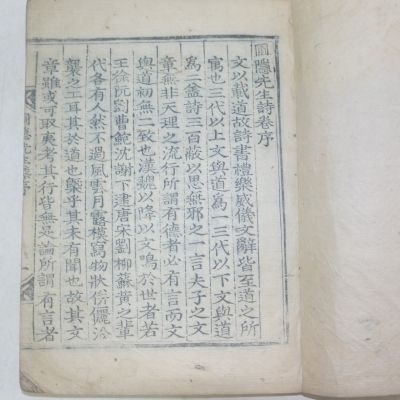 圃隱先生詩卷序
文以載道故詩書禮樂威儀文辭皆至道之所
寓也三代以上文與道爲一三代以下文與道
爲二盖詩三百蔽以思無邪之一言夫子之文
章無非天理之流行所謂有德者必有言而文
與道初無二致也漢魏以降以文鳴於世者若
王徐阮劉曹鮑沈謝下逮唐宋劉柳蘇黃之輩
代各有人然不過風雲月露模寫物狀傍儷洽
襲之工耳其於道也槩乎其未有聞也故其文
章雖或可取夷考其行皆無足論所謂有言者